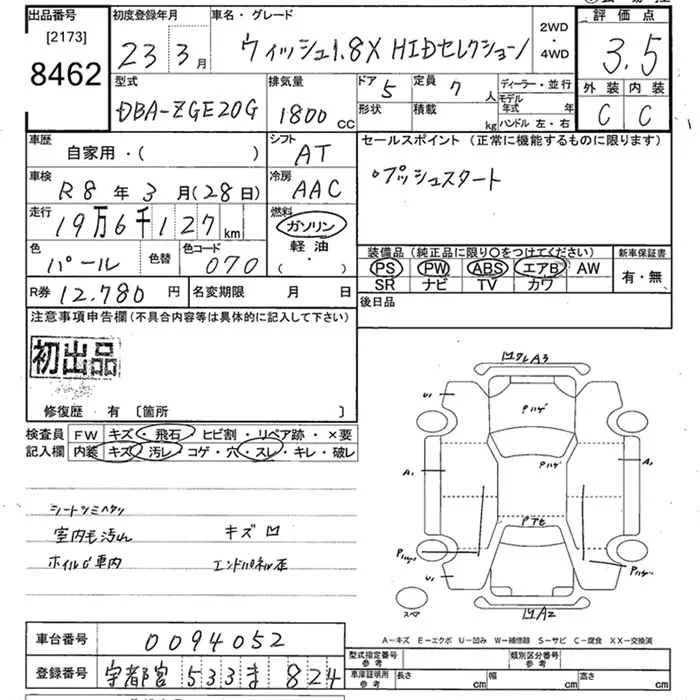 出品番号
[2173]
8462
初度登録年月
23 3月
車名・グレード
ウィッシュ1.8X HIDセレクション
2WD
・
4WD
評価点
3.5
外装 内装
C C
型式
DBA-ZGE20G
排気量
1800 CC
ドア 5
形状
定員 7 人
積載 kg
ディーラー・並行
モデル年式 年
ハンドル 左・右
車歴
自家用・( )
シフト
AT
セールスポイント (正常に機能するものに限ります)
・プッシュスタート
車検
R8年3月(28日)
冷房
AAC
走行
19万6千127km
燃料
ガソリン
軽油
( ・ )
色
パール
色替
色コード
070
装備品 (純正品に限り〇をつけてください)
PS PW ABS エアB AW
SR ナビ TV カワ
新車保証書
有・無
R券 12,780円
名変期限 月 日
後日品
注意事項申告欄(不具合内容等は具体的に記入して下さい)
初出品
修復歴 有 [箇所 ]
検査員記入欄
FW キズ・飛石・ヒビ割・リペア跡・×要
内装 キズ・汚レ・コゲ・穴・スレ・キレ・破レ
室内モ汚れ キズ凹
車内 エンドパネル歪
A3
U1
Pハゲ
A1 Pハゲ A1
U1
スペア
A2
A-キズ E-エクボ U-凹み W-補修跡 S-サビ C-腐食 XX-交換済
車台番号 0094052
登録番号 宇都宮 533 ま 824
型式指定番号 参考
類別区分番号 参考
車庫証明用 参考
長さ cm 幅 cm 高さ cm